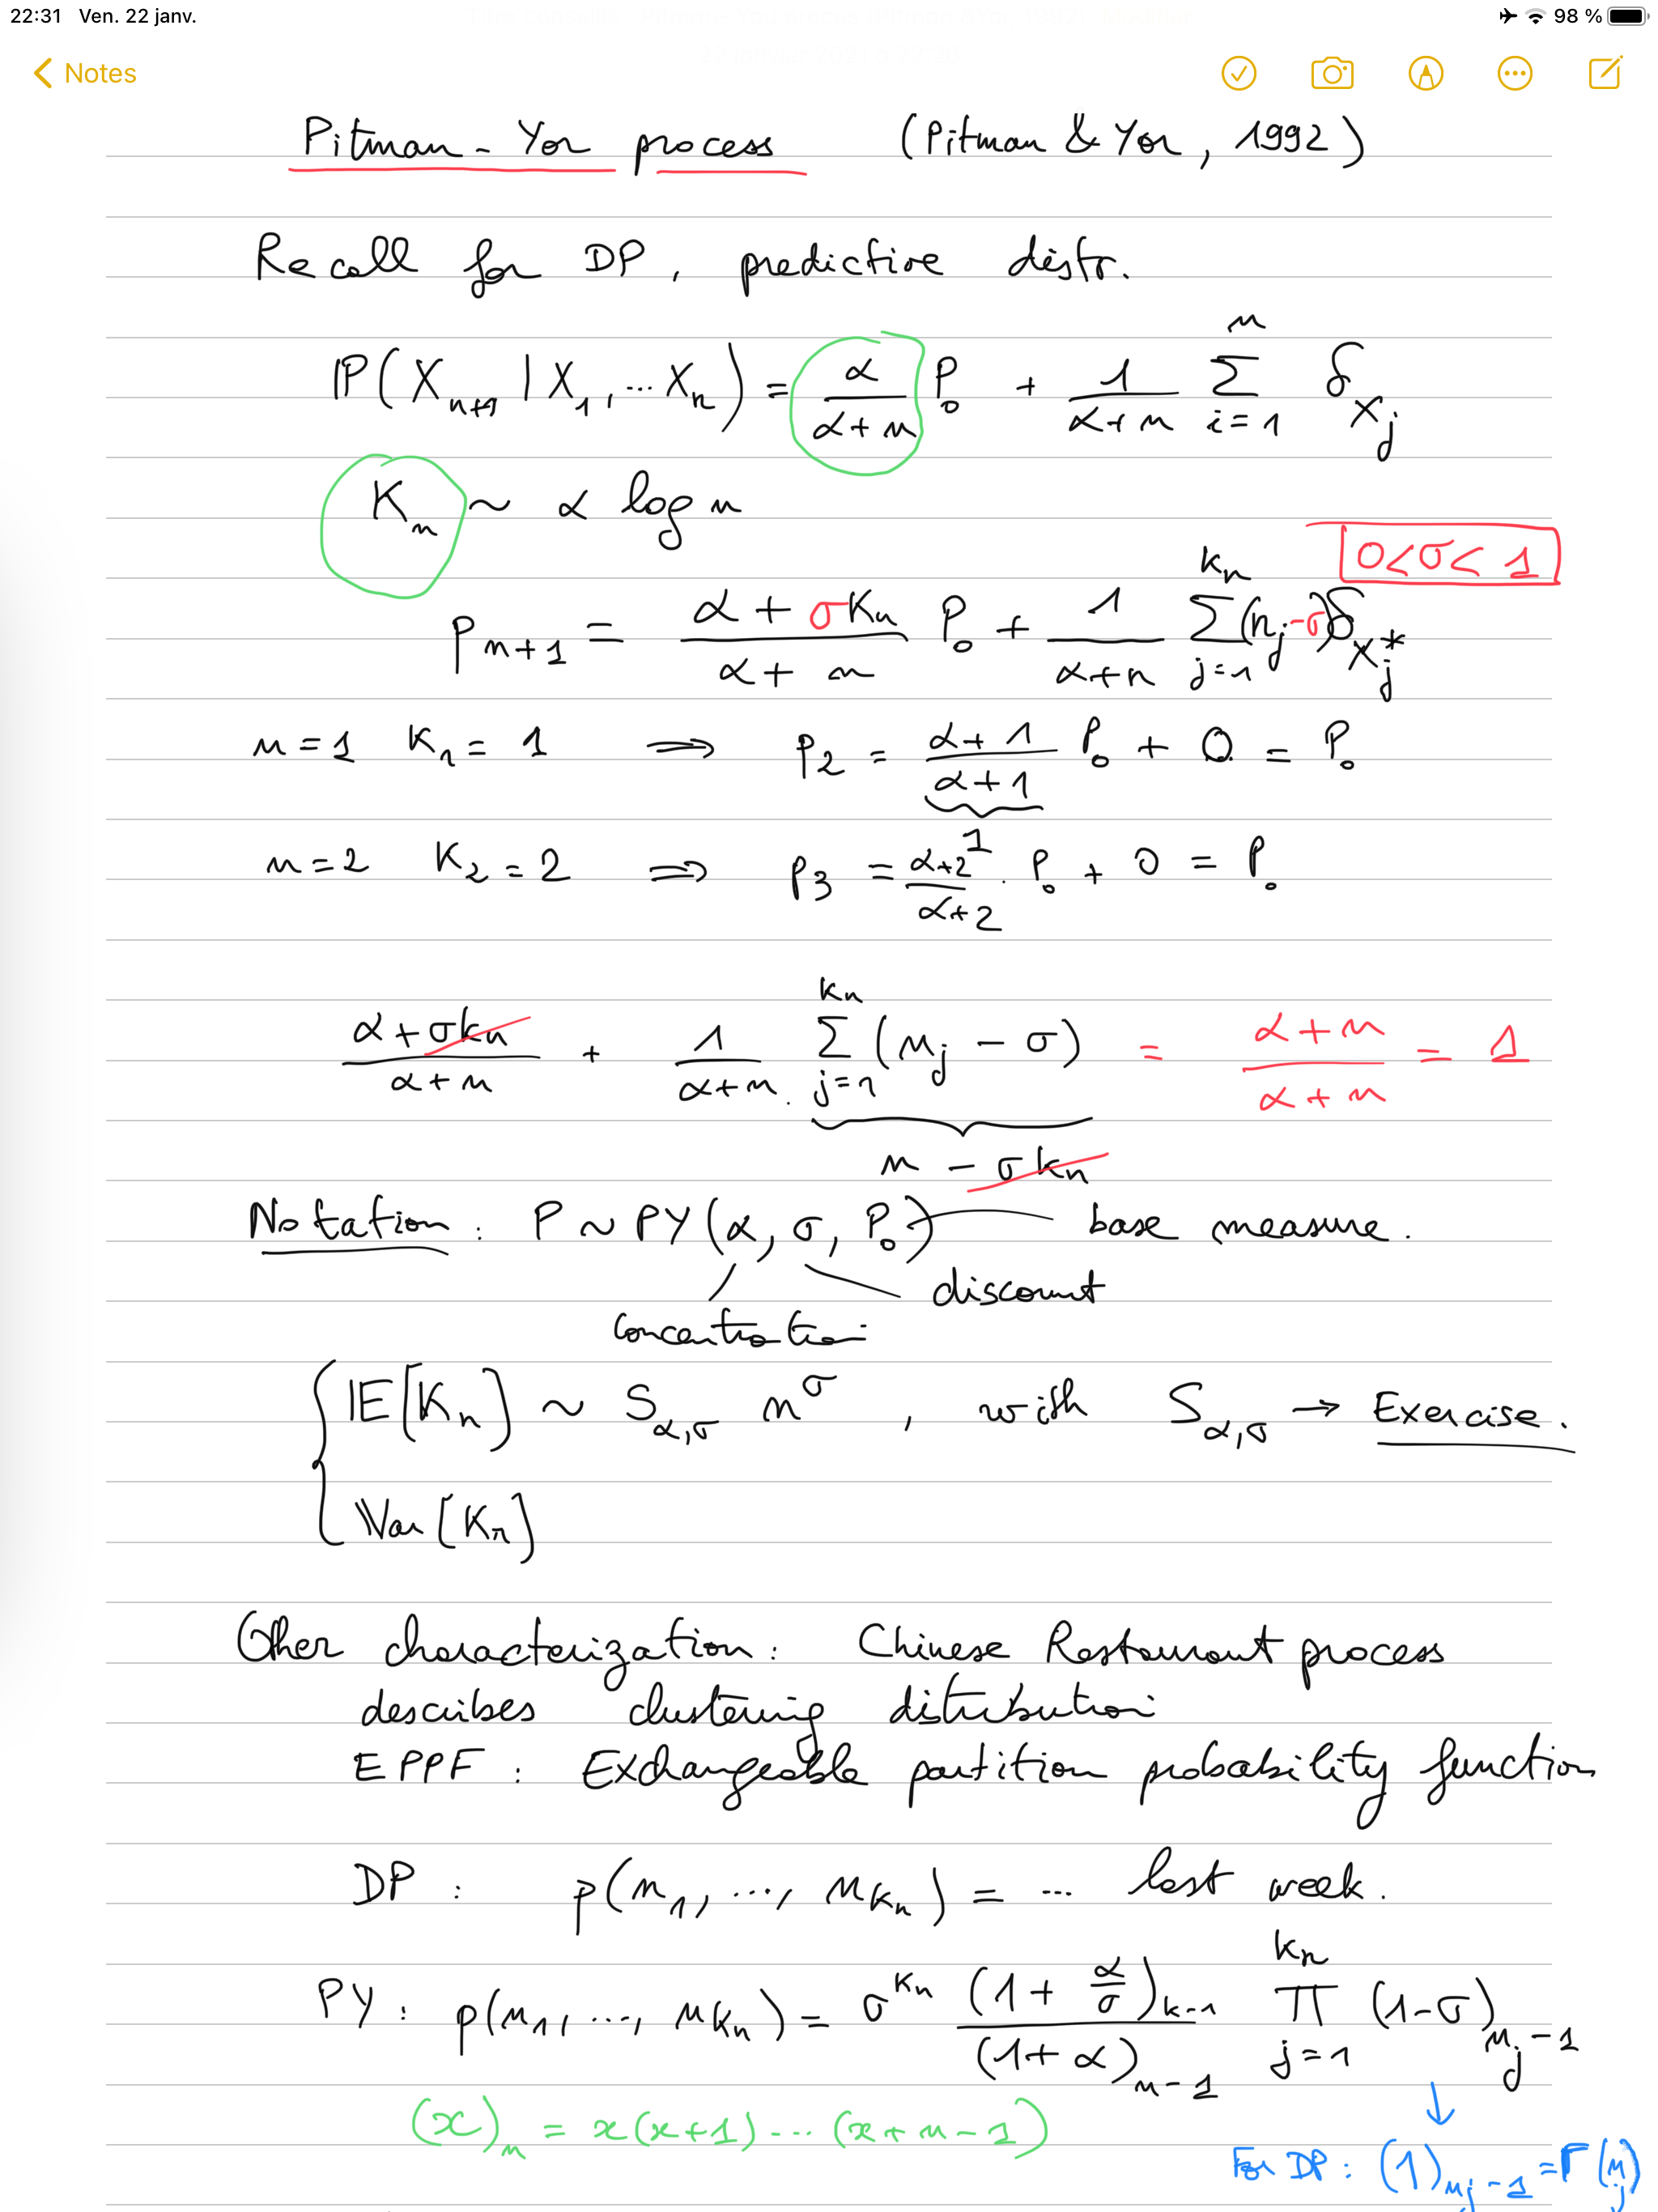 22:31 Ven. 22 janv. 98 %
Notes
Pitman - Yor process (Pitman & Yor, 1992)
Recall for DP, predictive distr.
ℙ(X_{n+1} | X_1, ... X_n) = α/(α+n) P_0 + 1/(α+n) Σ_{i=1}^{n} δ_{X_j}
K_n ~ α log n
0<σ<1
P_{n+1} = (α + σK_n)/(α + n) P_0 + 1/(α+n) Σ_{j=1}^{K_n} (n_j - σ) δ_{X_j^*}
n = 1 K_1 = 1 ⟹ P_2 = (α + 1)/(α + 1) P_0 + 0 = P_0
n = 2 K_2 = 2 ⟹ P_3 = (α+2)/(α+2) 1 · P_0 + 0 = P_0
(α + σk_n)/(α + n) + 1/(α+n) · Σ_{j=1}^{k_n} (n_j - σ) = (α + n)/(α + n) = 1
n - σk_n
Notation : P ~ PY(α, σ, P_0) base measure.
discount
concentration
𝔼[K_n] ~ S_{α,σ} n^σ , with S_{α,σ} → Exercise.
𝕍ar [K_n]
Other characterization : Chinese Restaurant process
describes clustering distribution
EPPF : Exchangeable partition probability function
DP : p(n_1, ..., n_{K_n}) = ... last week.
PY : p(n_1, ..., n_{K_n}) = σ^{K_n} (1 + α/σ)_{k-1}/(1+α)_{n-1} Π_{j=1}^{K_n} (1-σ)_{n_j-1}
↓
(x)_n = x(x+1) ... (x+n-1)
For DP : (1)_{n_j-1} = Γ(n_j)